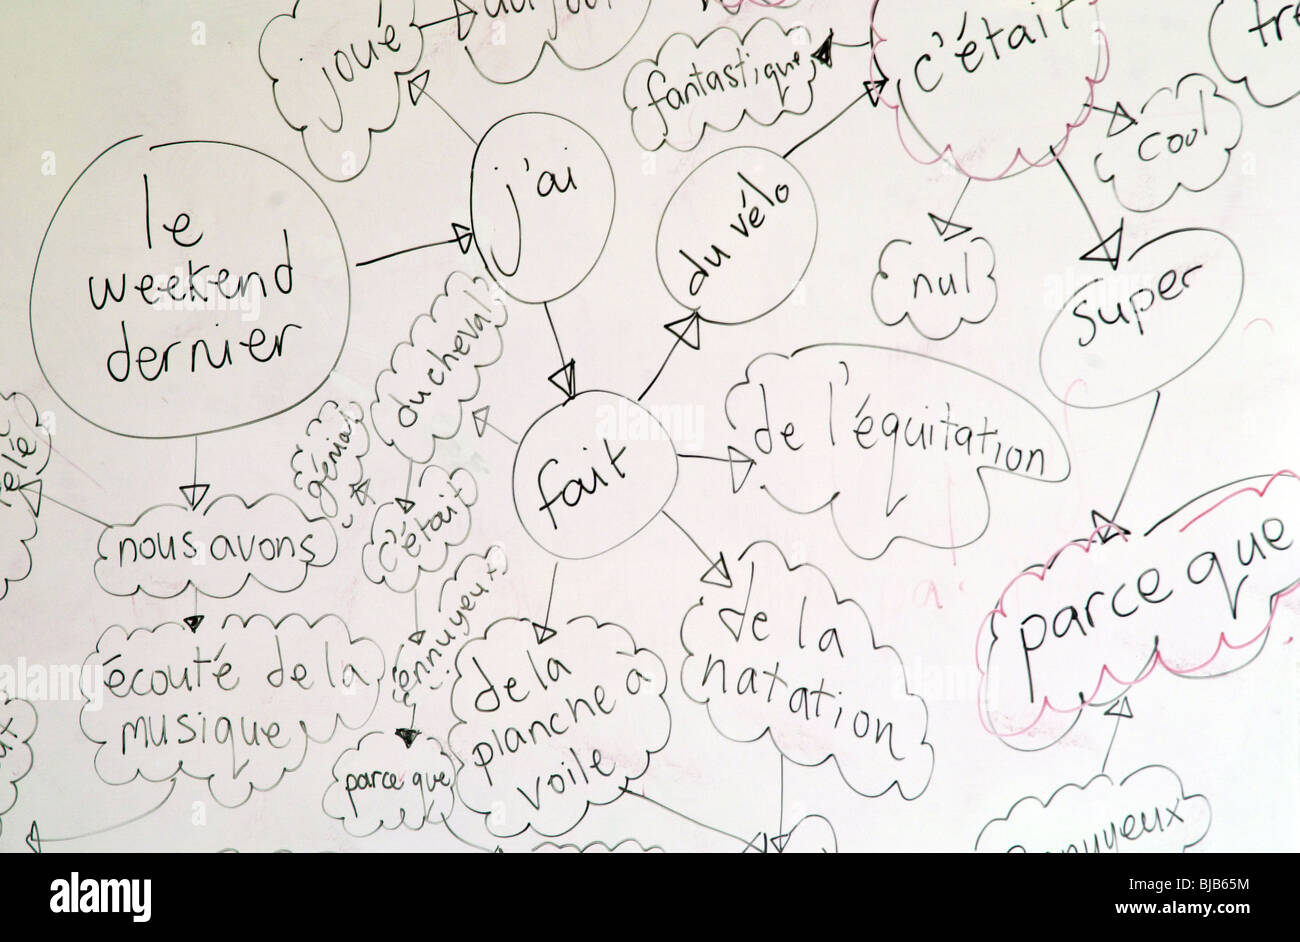 joué
fantastique
c'était
cool
j'ai
du vélo
le
weekend
dernier
nul
super
du cheval
de l'équitation
fait
génial
c'était
nous avons
parce que
ennuyeux
de la
natation
écouté de la
musique
de la
planche à
voile
parce que
alamy
alamy
Image ID: BJB65M
www.alamy.com